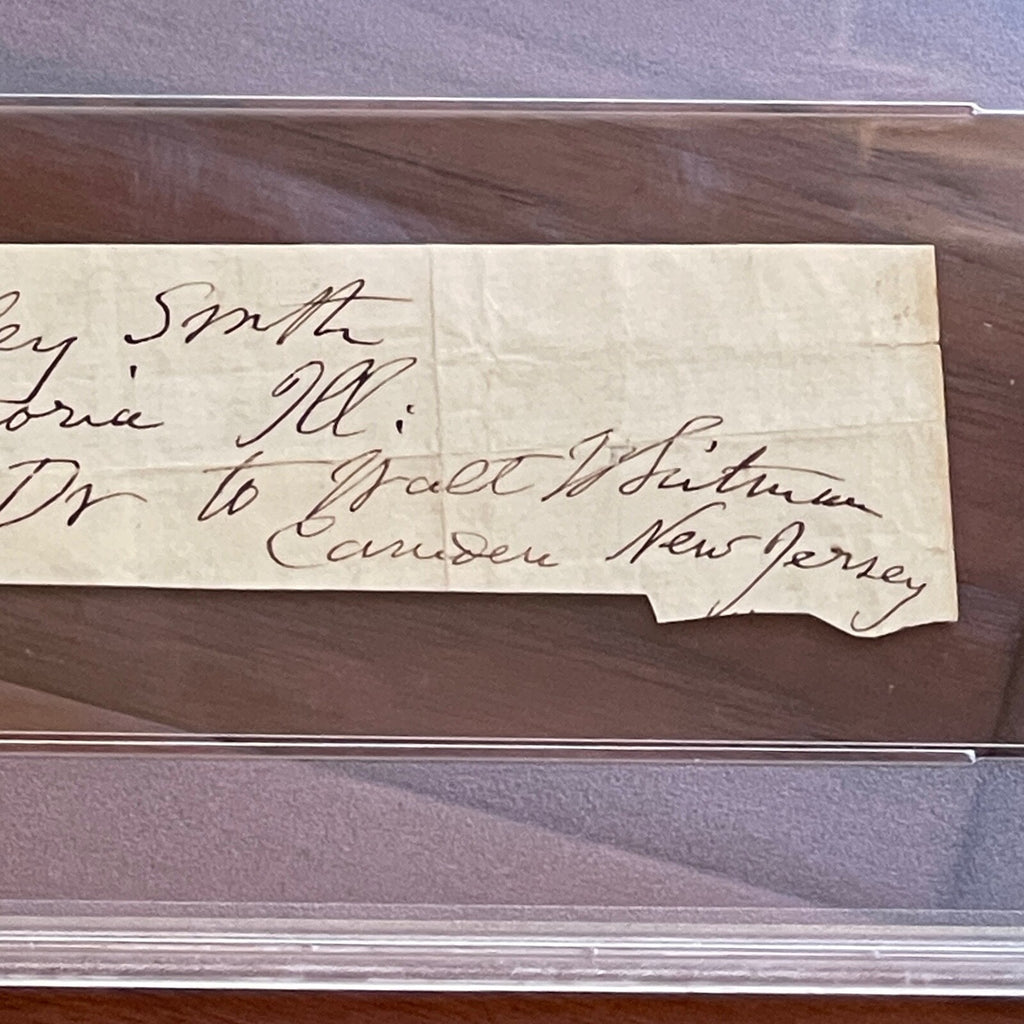 ey Smith
oria Ill:
Dr to Walt Whitman
Camden New Jersey